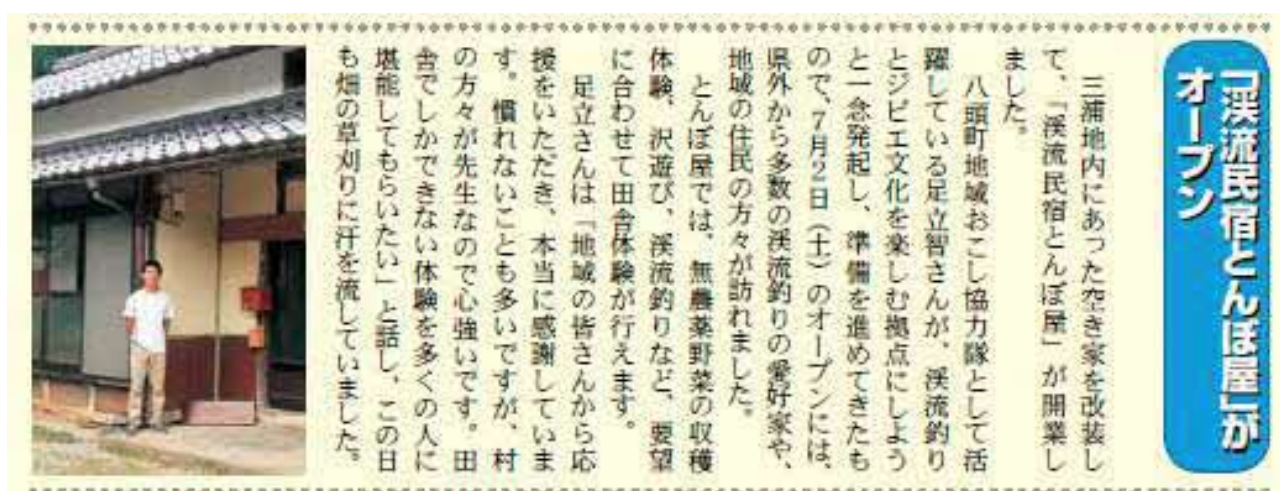 「渓流民宿とんぼ屋」が
オープン
三浦地内にあった空き家を改装し
て、「渓流民宿とんぼ屋」が開業し
ました。
八頭町地域おこし協力隊として活
躍している足立智さんが、渓流釣り
とジビエ文化を楽しむ拠点にしよう
と一念発起し、準備を進めてきたも
ので、7月2日（土）のオープンには、
県外から多数の渓流釣りの愛好家や、
地域の住民の方々が訪れました。
とんぼ屋では、無農薬野菜の収穫
体験、沢遊び、渓流釣りなど、要望
に合わせて田舎体験が行えます。
足立さんは「地域の皆さんから応
援をいただき、本当に感謝していま
す。慣れないことも多いですが、村
の方々が先生なので心強いです。田
舎でしかできない体験を多くの人に
堪能してもらいたい」と話し、この日
も畑の草刈りに汗を流していました。